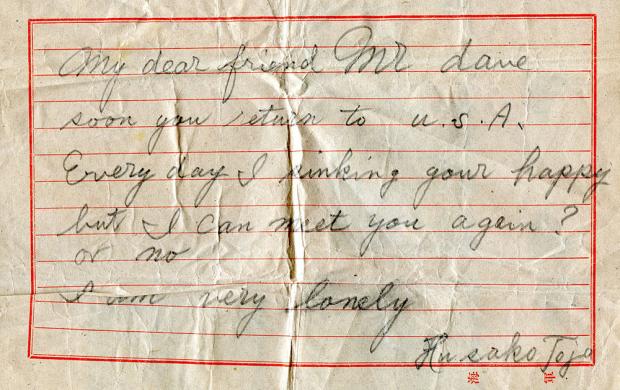 My dear friend Mr dave
soon you return to u.s.A.
Every day I sinking your happy
but I can meet you again?
or no
I am very lonely
Husako Tojo